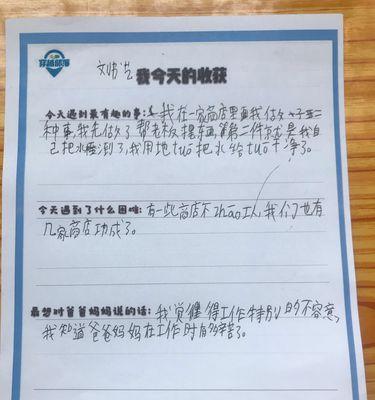 穿越部落
我今天的收获
今天遇到最有趣的事:我在一家商店里面我做了好玩
种事,我先做了帮老板提东西,第二件就是我自
己把水弄倒了,我用地tuō把水给tuō干净了。
今天遇到了什么困难:有一些商店不zhāo工人,我们也有
几家商店功成了。
最想对爸爸妈妈说的话:我觉懂得工作特别的不容意,
我知道爸爸妈妈在工作时有多辛苦了。